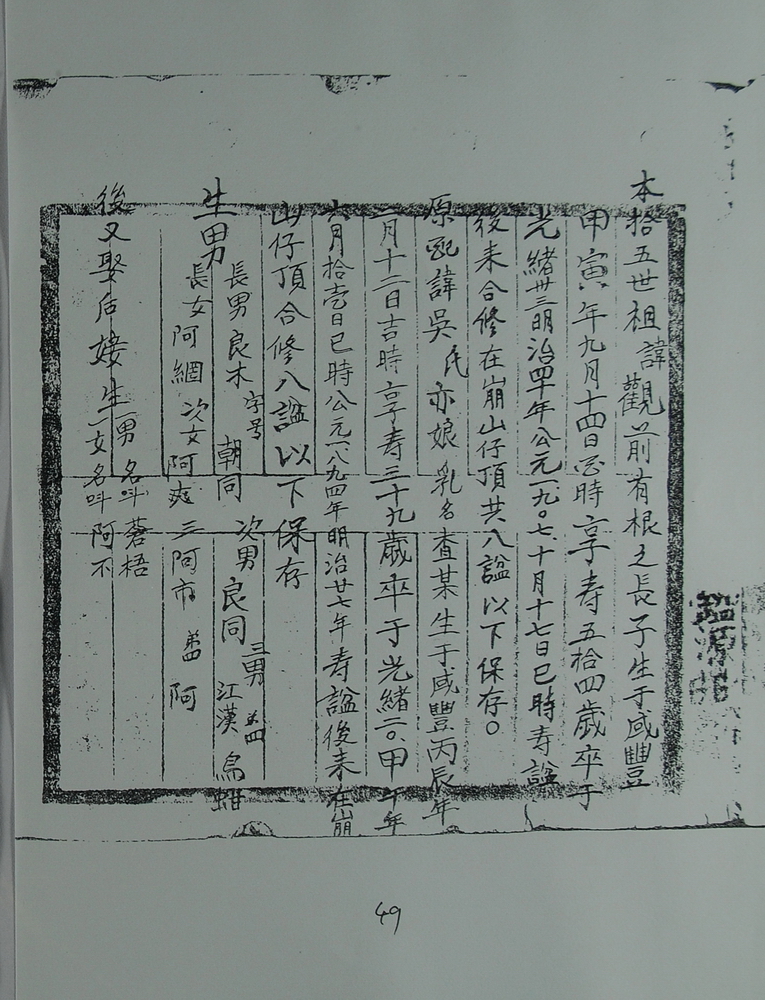 本拾五世祖諱觀前有根之長子生于咸豐
甲寅年九月十四日吉時享壽五拾四歲卒于
光緒卅三明治四十年公元一九○七、十月十七日巳時壽謚
後来合修在崩山仔頂共八謚以下保存。
原配諱吳氏亦娘乳名查某生于咸豐丙辰年
二月十二日吉時享壽三十九歲卒于光緒二○、甲午年
六月拾壱日巳時公元一八九四年明治廿七年壽謚後来在崩
山仔頂合修八謚以下保存
生男
長男良木字号朝同 次男良同 三男江漢 弟四烏蚶
長女阿綢 次女阿爽 三阿市 弟四阿
後又娶后接生一男名叫蒼梧
一女名叫阿不
鑑源堂
49